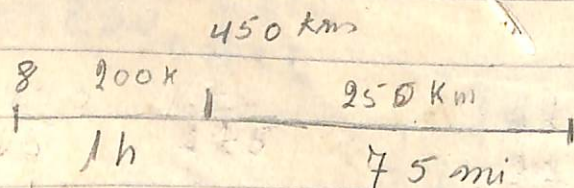 450 km
8 200K 250 Km
1h 75 mi